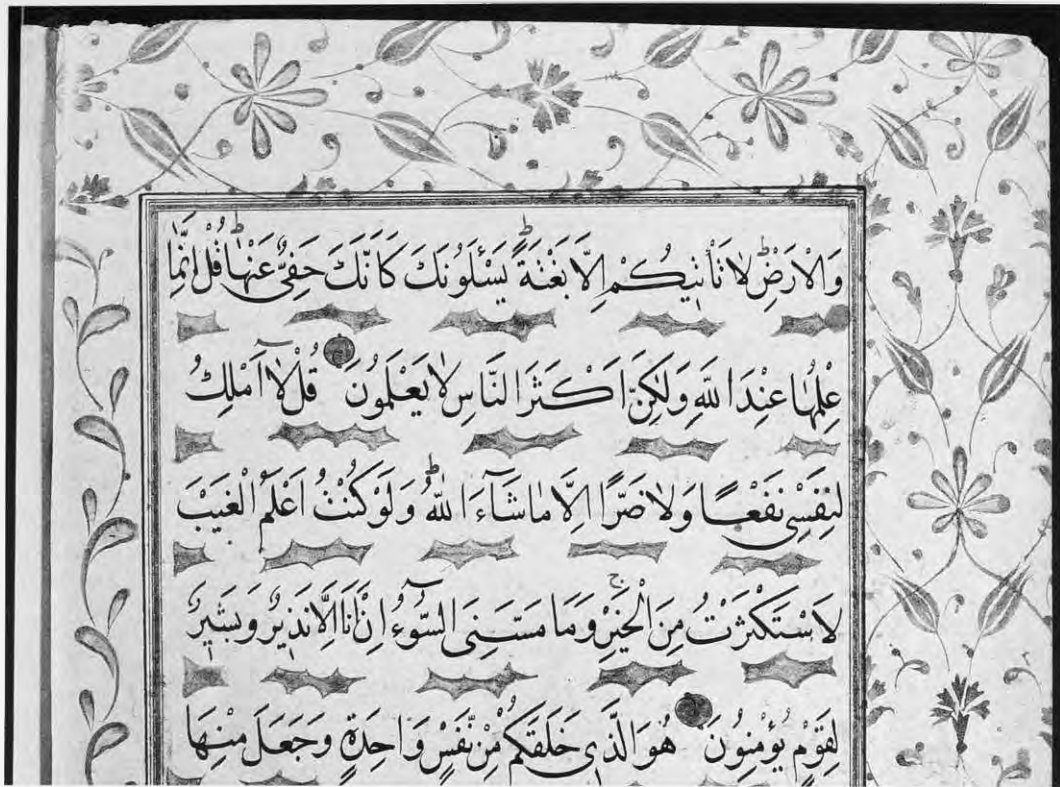 وَالْاَرْضِ ط لَا تَأْتِيكُمْ اِلَّا بَغْتَةً ط يَسْـَٔلُونَكَ كَاَنَّكَ حَفِىٌّ عَنْهَا ط قُلْ اِنَّمَا
عِلْمُهَا عِنْدَ اللّٰهِ وَلٰكِنَّ اَكْثَرَ النَّاسِ لَا يَعْلَمُونَ قُلْ لَٓا اَمْلِكُ
لِنَفْسِى نَفْعًا وَلَا ضَرًّا اِلَّا مَا شَٓاءَ اللّٰهُ ط وَلَوْ كُنْتُ اَعْلَمُ الْغَيْبَ
لَاسْتَكْثَرْتُ مِنَ الْخَيْرِ ج وَمَا مَسَّنِىَ السُّٓوءُ اِنْ اَنَا اِلَّا نَذِيرٌ وَبَشِيرٌ
لِقَوْمٍ يُؤْمِنُونَ هُوَ الَّذِى خَلَقَكُمْ مِنْ نَفْسٍ وَاحِدَةٍ وَجَعَلَ مِنْهَا